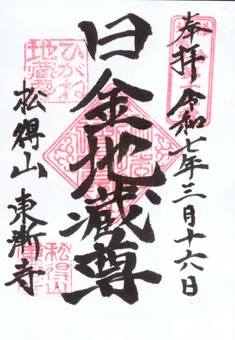 奉拝 令和七年三月十六日
日金地蔵尊
松得山 東漸寺
ひがね
地蔵尊
松得山